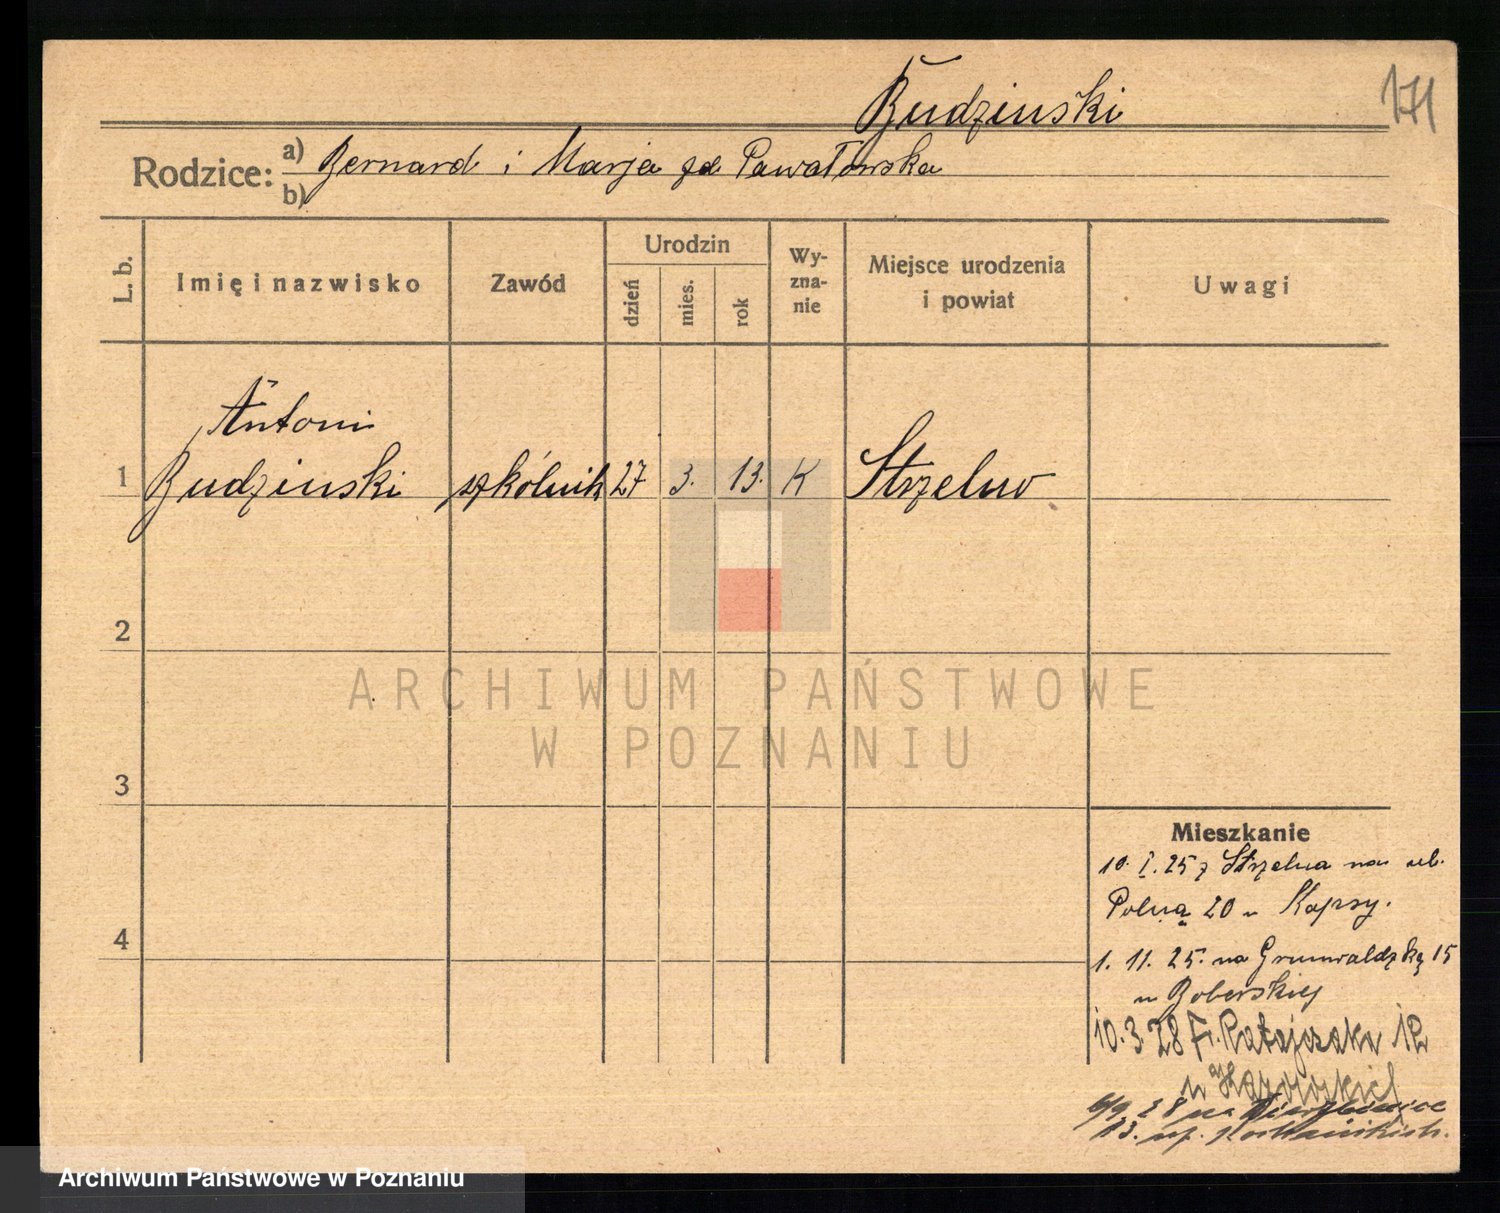 Budzinski
171
Rodzice: a) Bernard i Marja zd Pawałowska
b)
L. b.
Imię i nazwisko
Zawód
Urodzin
dzień
mies.
rok
Wy-
zna-
nie
Miejsce urodzenia
i powiat
Uwagi
Antoni
1 Budzinski szkólnik 27 3. 13. K Strzelno
2
ARCHIWUM PAŃSTWOWE
W POZNANIU
3
Mieszkanie
10. I. 25 z Strzelna na ul.
Polną 20 u Kapsy.
4
1. 11. 25. na Grunwaldzką 15
u Boberskiej
10. 3. 28 Fr. Ratajczaka 12
u
6/9 28 na Wierzbięcice
13.
Archiwum Państwowe w Poznaniu